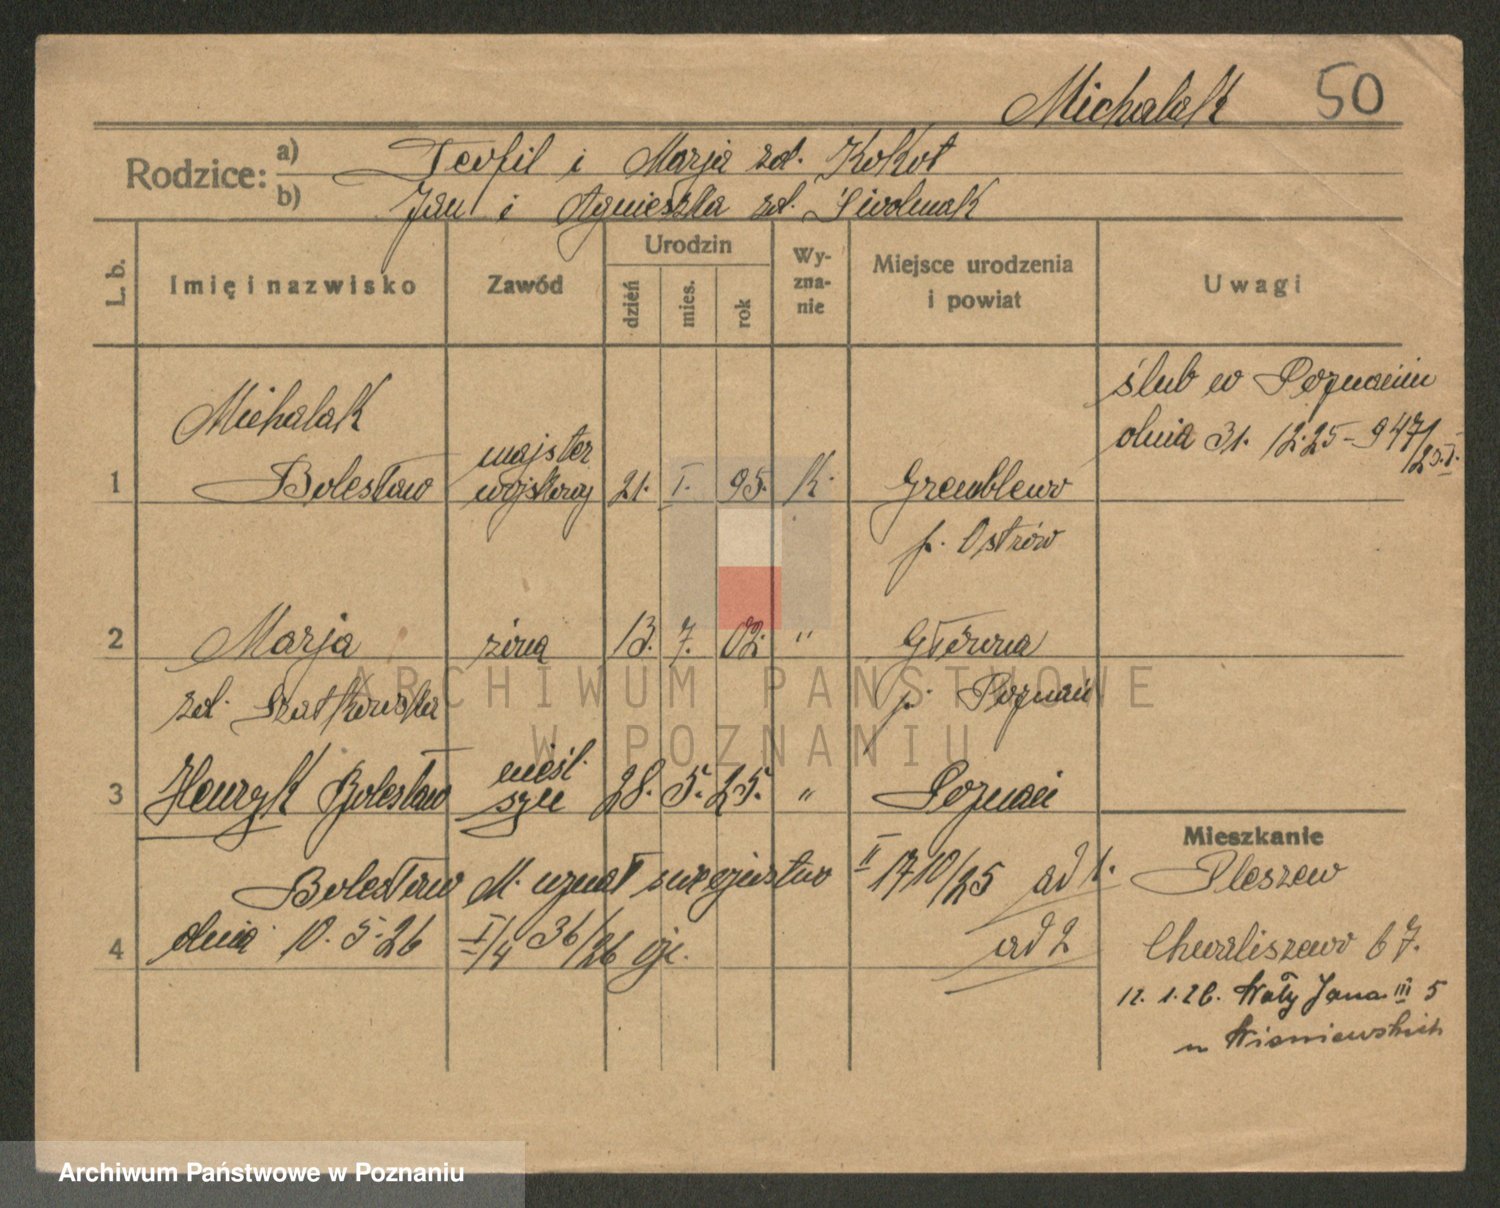 Michalak 50
Rodzice:
a) Teofil i Marja zd. Kokot
b) Jan i Agnieszka zd.
L. b.
Imię i nazwisko
Zawód
Urodzin
dzień
mies.
rok
Wy-
zna-
nie
Miejsce urodzenia
i powiat
Uwagi
ślub w Poznaniu
dnia 31. 12.25 - 947/25.I.
Michalak
majster
1 Bolesław wojskowy 21. I. 95. k. Gremblewo
p. Ostrów
2 Marja żona 13. 7. 02. " Główna
zd. Szatkowska p. Poznań
nieśl.
3 Henryk Bolesław syn 28. 5. 25. " Poznań
Mieszkanie
Bolesław M. uznał swe ojcostwo II 1710/25 ad 1. Pleszew
4 dnia 10. 5. 26 I/4 36/26 ad 2 Chwaliszewo 67.
12. 1. 26. Wały Jana III 5
u Wiśniewskich
ARCHIWUM PAŃSTWOWE
W POZNANIU
Archiwum Państwowe w Poznaniu